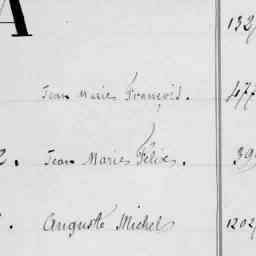 A
132
Jean Marie François. 477
2. Jean Marie Félix. 39
. Auguste Michel 1202